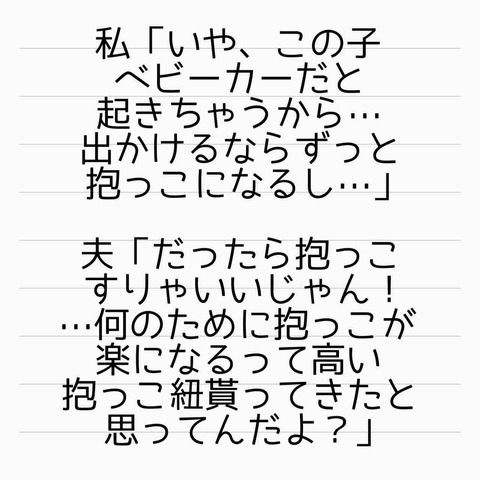 私「いや、この子
ベビーカーだと
起きちゃうから…
出かけるならずっと
抱っこになるし…」
夫「だったら抱っこ
すりゃいいじゃん！
…何のために抱っこが
楽になるって高い
抱っこ紐貰ってきたと
思ってんだよ？」